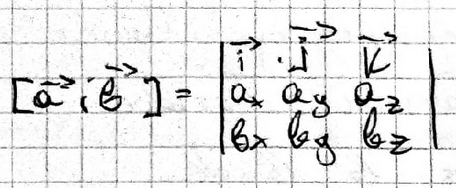 [a⃗; b⃗] = | i⃗ j⃗ k⃗ |
| aₓ a_y a_z |
| bₓ b_y b_z |